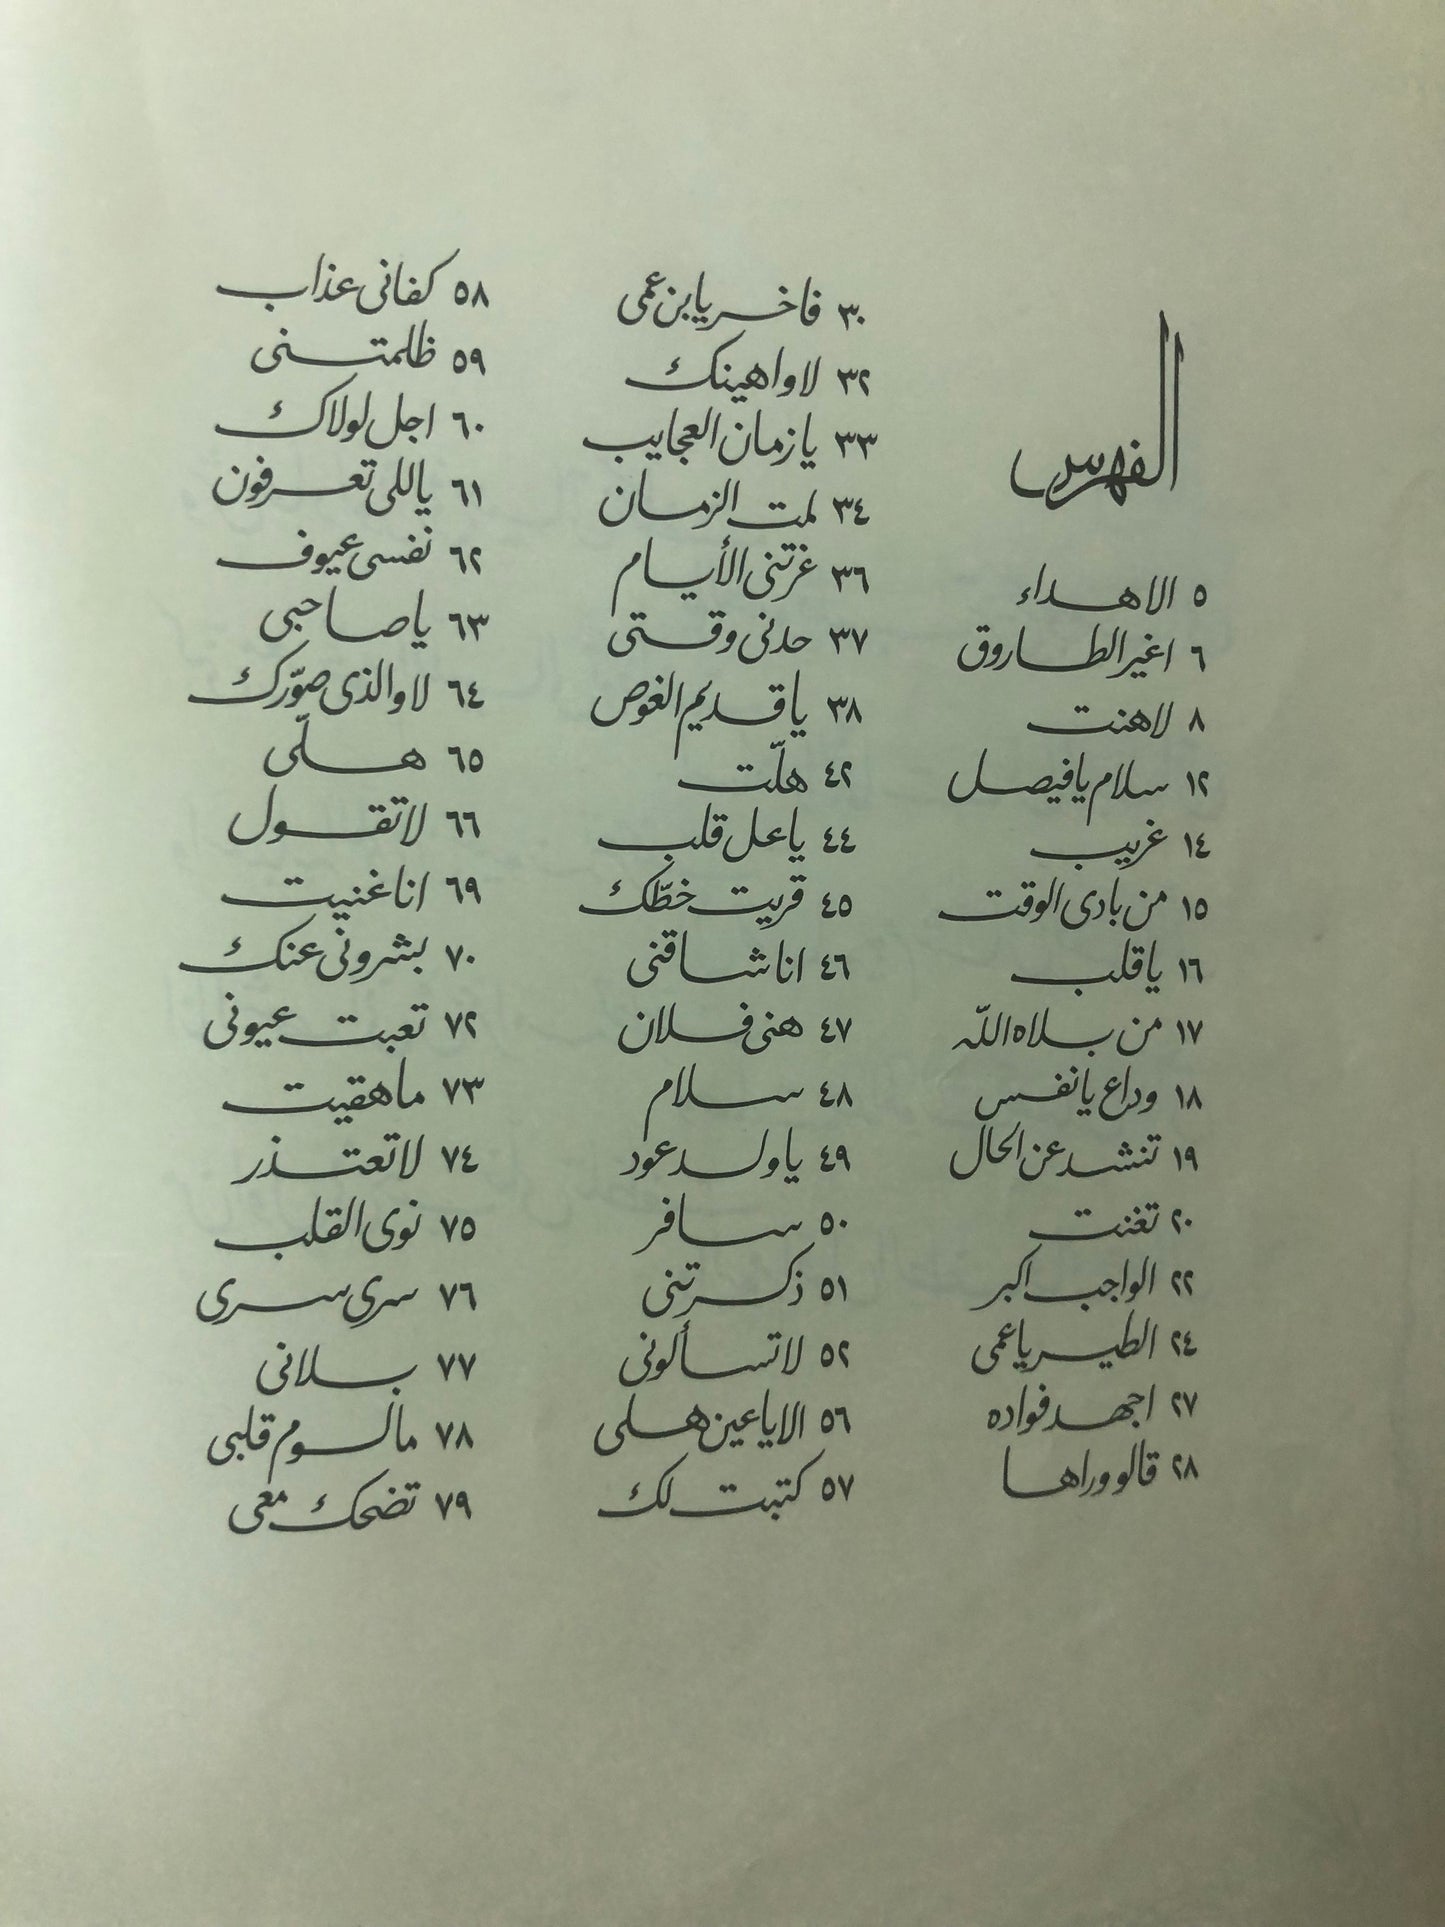 الفهرس
٥ الاهداء
٦ اغير الطاروق
٨ لاهنت
١٢ سلام يا فيصل
١٤ غريب
١٥ من بادى الوقت
١٦ يا قلب
١٧ من بلاه اللّه
١٨ وداع يا نفس
١٩ تنشد عن الحال
٢٠ تغنت
٢٢ الواجب اكبر
٢٤ الطير يا عمى
٢٧ اجهد فواده
٢٨ قالو وراها
٣٠ فاخر يا بن عمى
٣٢ لا واهينك
٣٣ يا زمان العجايب
٣٤ لمت الزمان
٣٦ غرتنى الأيام
٣٧ حدنى وقتى
٣٨ يا قديم الغوص
٤٢ هلّت
٤٤ يا عل قلب
٤٥ قريت خطّك
٤٦ انا شاقنى
٤٧ هنى فلان
٤٨ سلام
٤٩ يا ولد عود
٥٠ سافر
٥١ ذكرتنى
٥٢ لا تسألونى
٥٦ الا يا عين هلى
٥٧ كتبت لك
٥٨ كفانى عذاب
٥٩ ظلمتنى
٦٠ اجل لولاك
٦١ ياللى تعرفون
٦٢ نفسى عيوف
٦٣ يا صاحبى
٦٤ لا والذى صوّرك
٦٥ هلّى
٦٦ لا تقول
٦٩ انا غنيت
٧٠ بشرونى عنك
٧٢ تعبت عيونى
٧٣ ما هقيت
٧٤ لا تعتذر
٧٥ نوى القلب
٧٦ سرى سرى
٧٧ بلانى
٧٨ مالوم قلبى
٧٩ تضحك معى